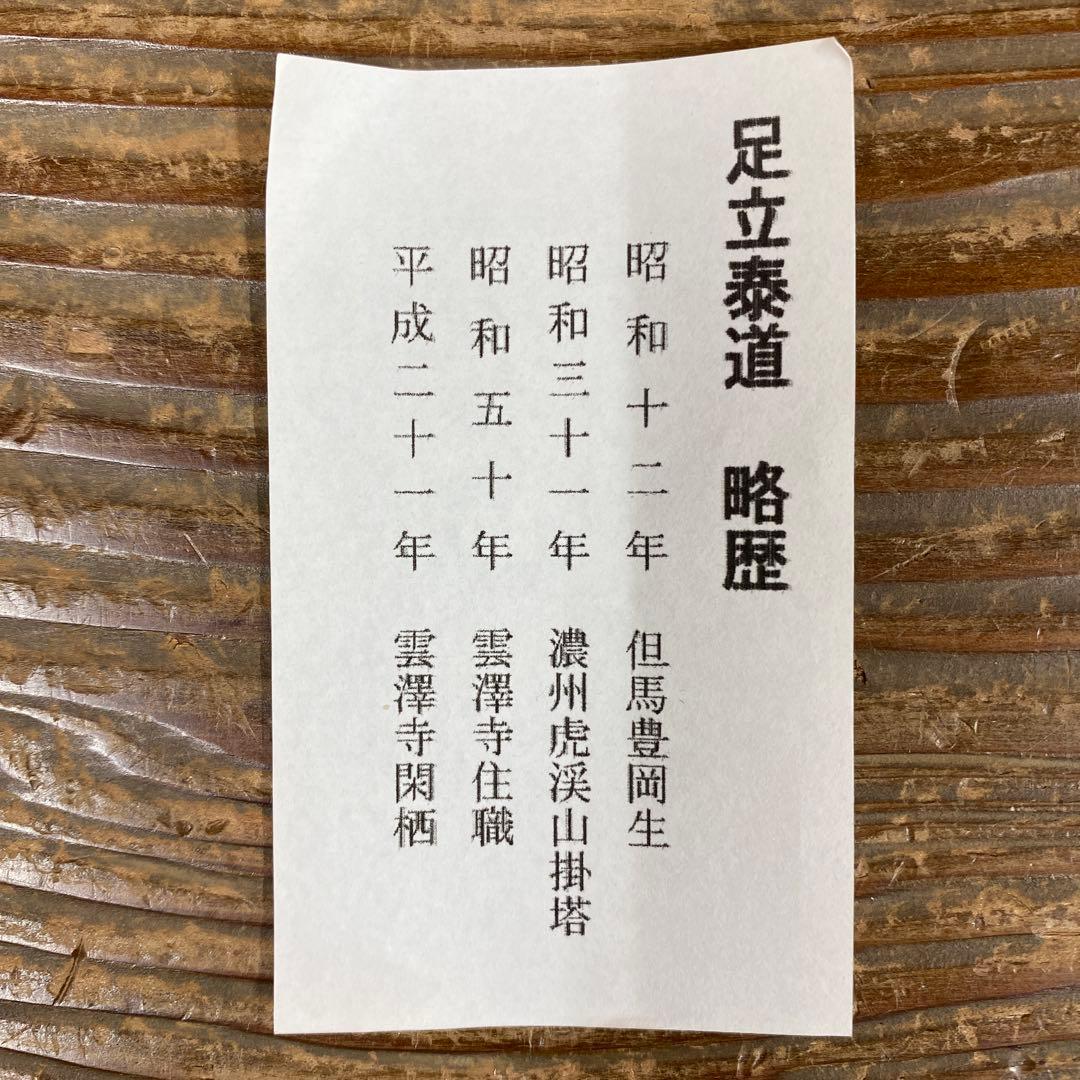 足立泰道　略歴
昭和十二年　但馬豊岡生
昭和三十一年　濃州虎渓山掛塔
昭和五十年　雲澤寺住職
平成二十一年　雲澤寺閑栖